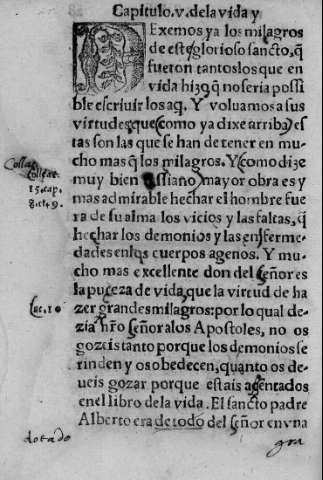 Capitulo.v.dela vida y
DExemos ya los milagros
de este glorioso sancto,q̃
fueron tantos los que en
vida hizo, q̃ no seria possi
ble escriuir los aq̃. Y voluamos a sus
virtudes, que (como ya dixe arriba) es
tas son las que se han de tener en mu-
cho mas q̃ los milagros. Y (como dize
muy bien Cassiano) mayor obra es y
mas admirable hechar el hombre fue
ra de su alma los vicios y las faltas, q̃
hechar los demonios y las enferme-
dades en los cuerpos agenos. Y mu-
cho mas excellente don del señor es
la pureza de vida, que la virtud de ha
zer grandes milagros: por lo qual de-
zia n̄ro señor a los Apostoles, no os
gozeis tanto porque los demonios se
rinden y os obedecen, quanto os de-
ueis gozar porque estais assentados
en el libro de la vida. El sancto padre
Alberto era de todo del señor en vna
Collat.
15. cap.
8. et 9.
Luc. 10
dotado
gra